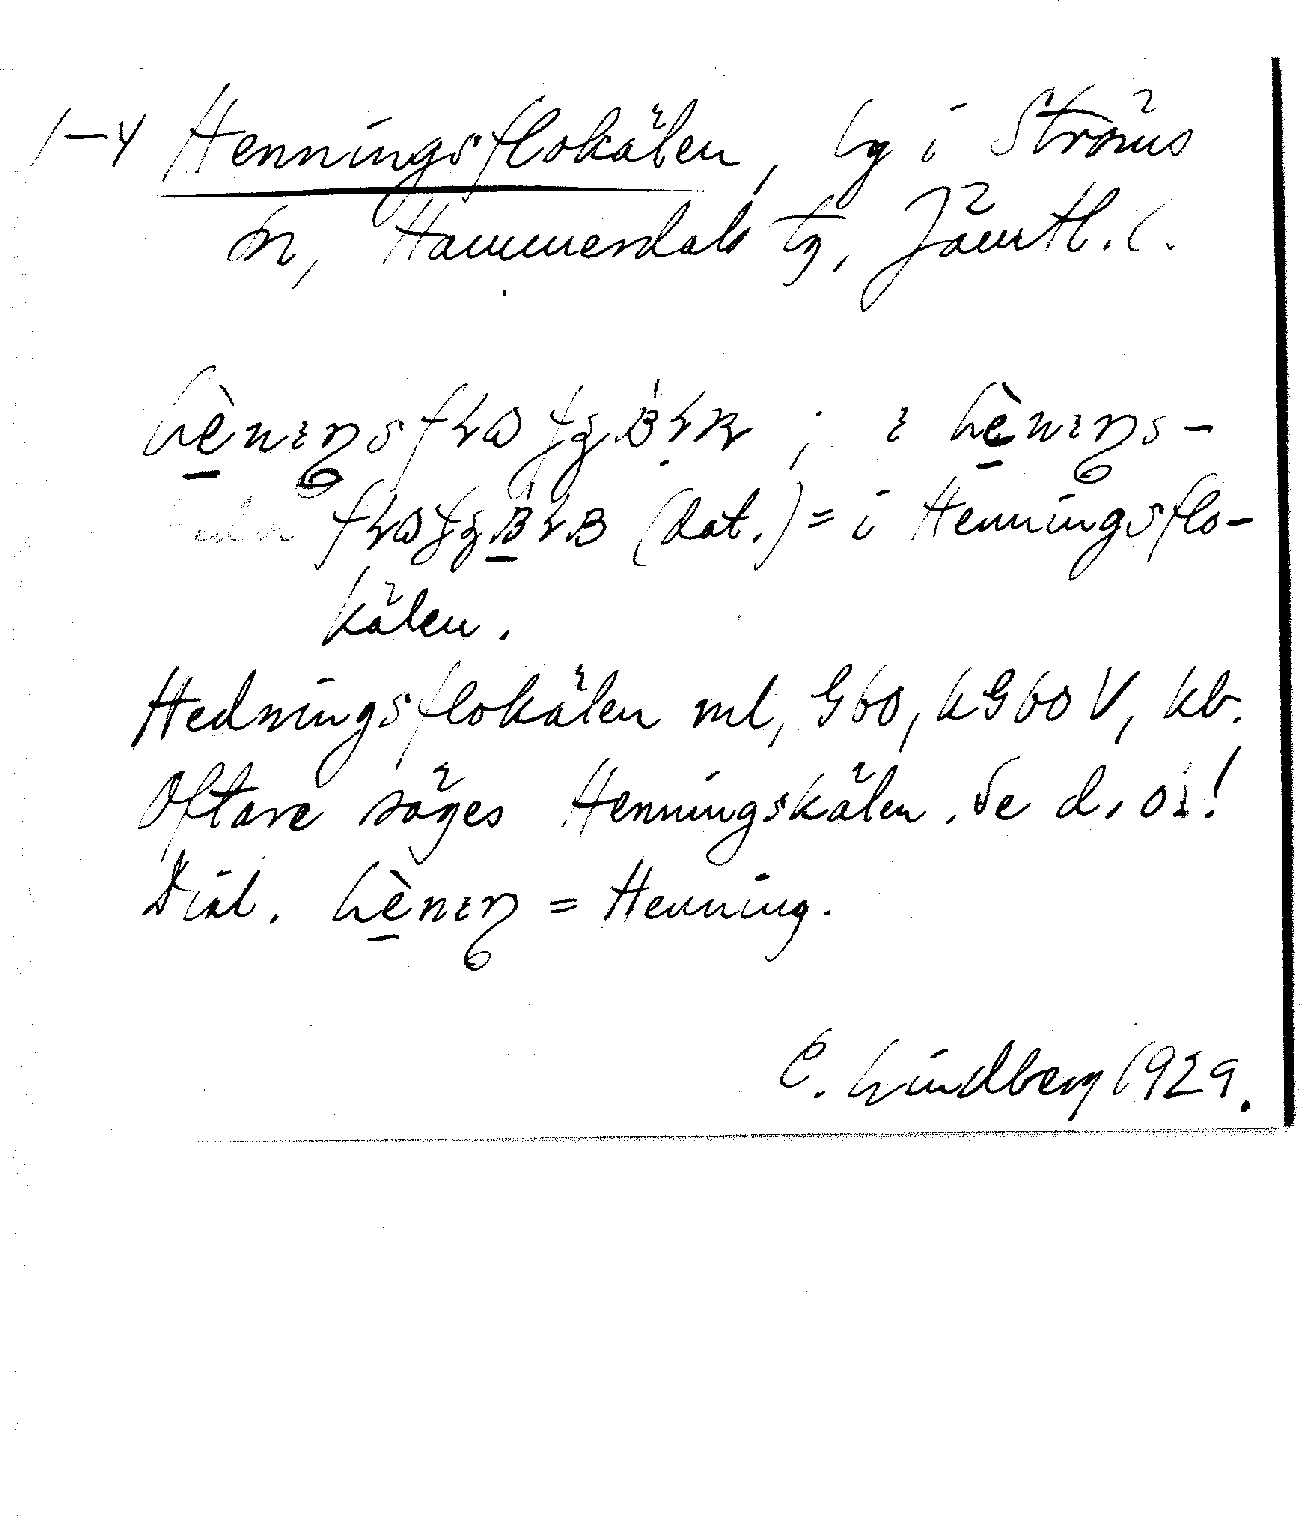 1-4 Henningsflokälen, by i Ströms
sn, Hammerdals tg, Jämtl. l.
hèneŋs ; i hèneŋs-
(dat.) = i Henningsflo-
kälen.
Hedningsflokälen ml, G60, kG60V, kb.
Oftare säges Henningskälen. Se d. o.!
Dial. hèneŋ = Henning.
C. Lindberg 1929.